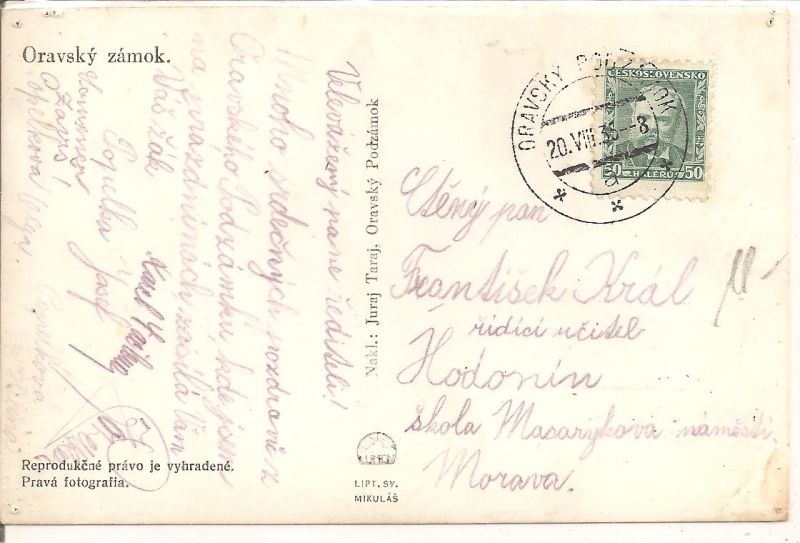 Oravský zámok.
Velevážený pane řediteli!
Mnoho srdečných pozdravů z
Oravského Podzámku, kde jsme
na prázdninách zasílá Vám
Váš žák
Popelka Josef
Reprodukčné právo je vyhradené.
Pravá fotografia.
Nakl.: Juraj Taraj, Oravský Podzámok
LIPT. SV.
MIKULÁŠ
ORAVSKÝ PODZÁMOK
20.VIII.35-8
ČESKOSLOVENSKO
50 HALÉŘŮ 50
Ctěný pan
František Král
řídící učitel
Hodonín
škola Masarykova náměstí.
Morava.